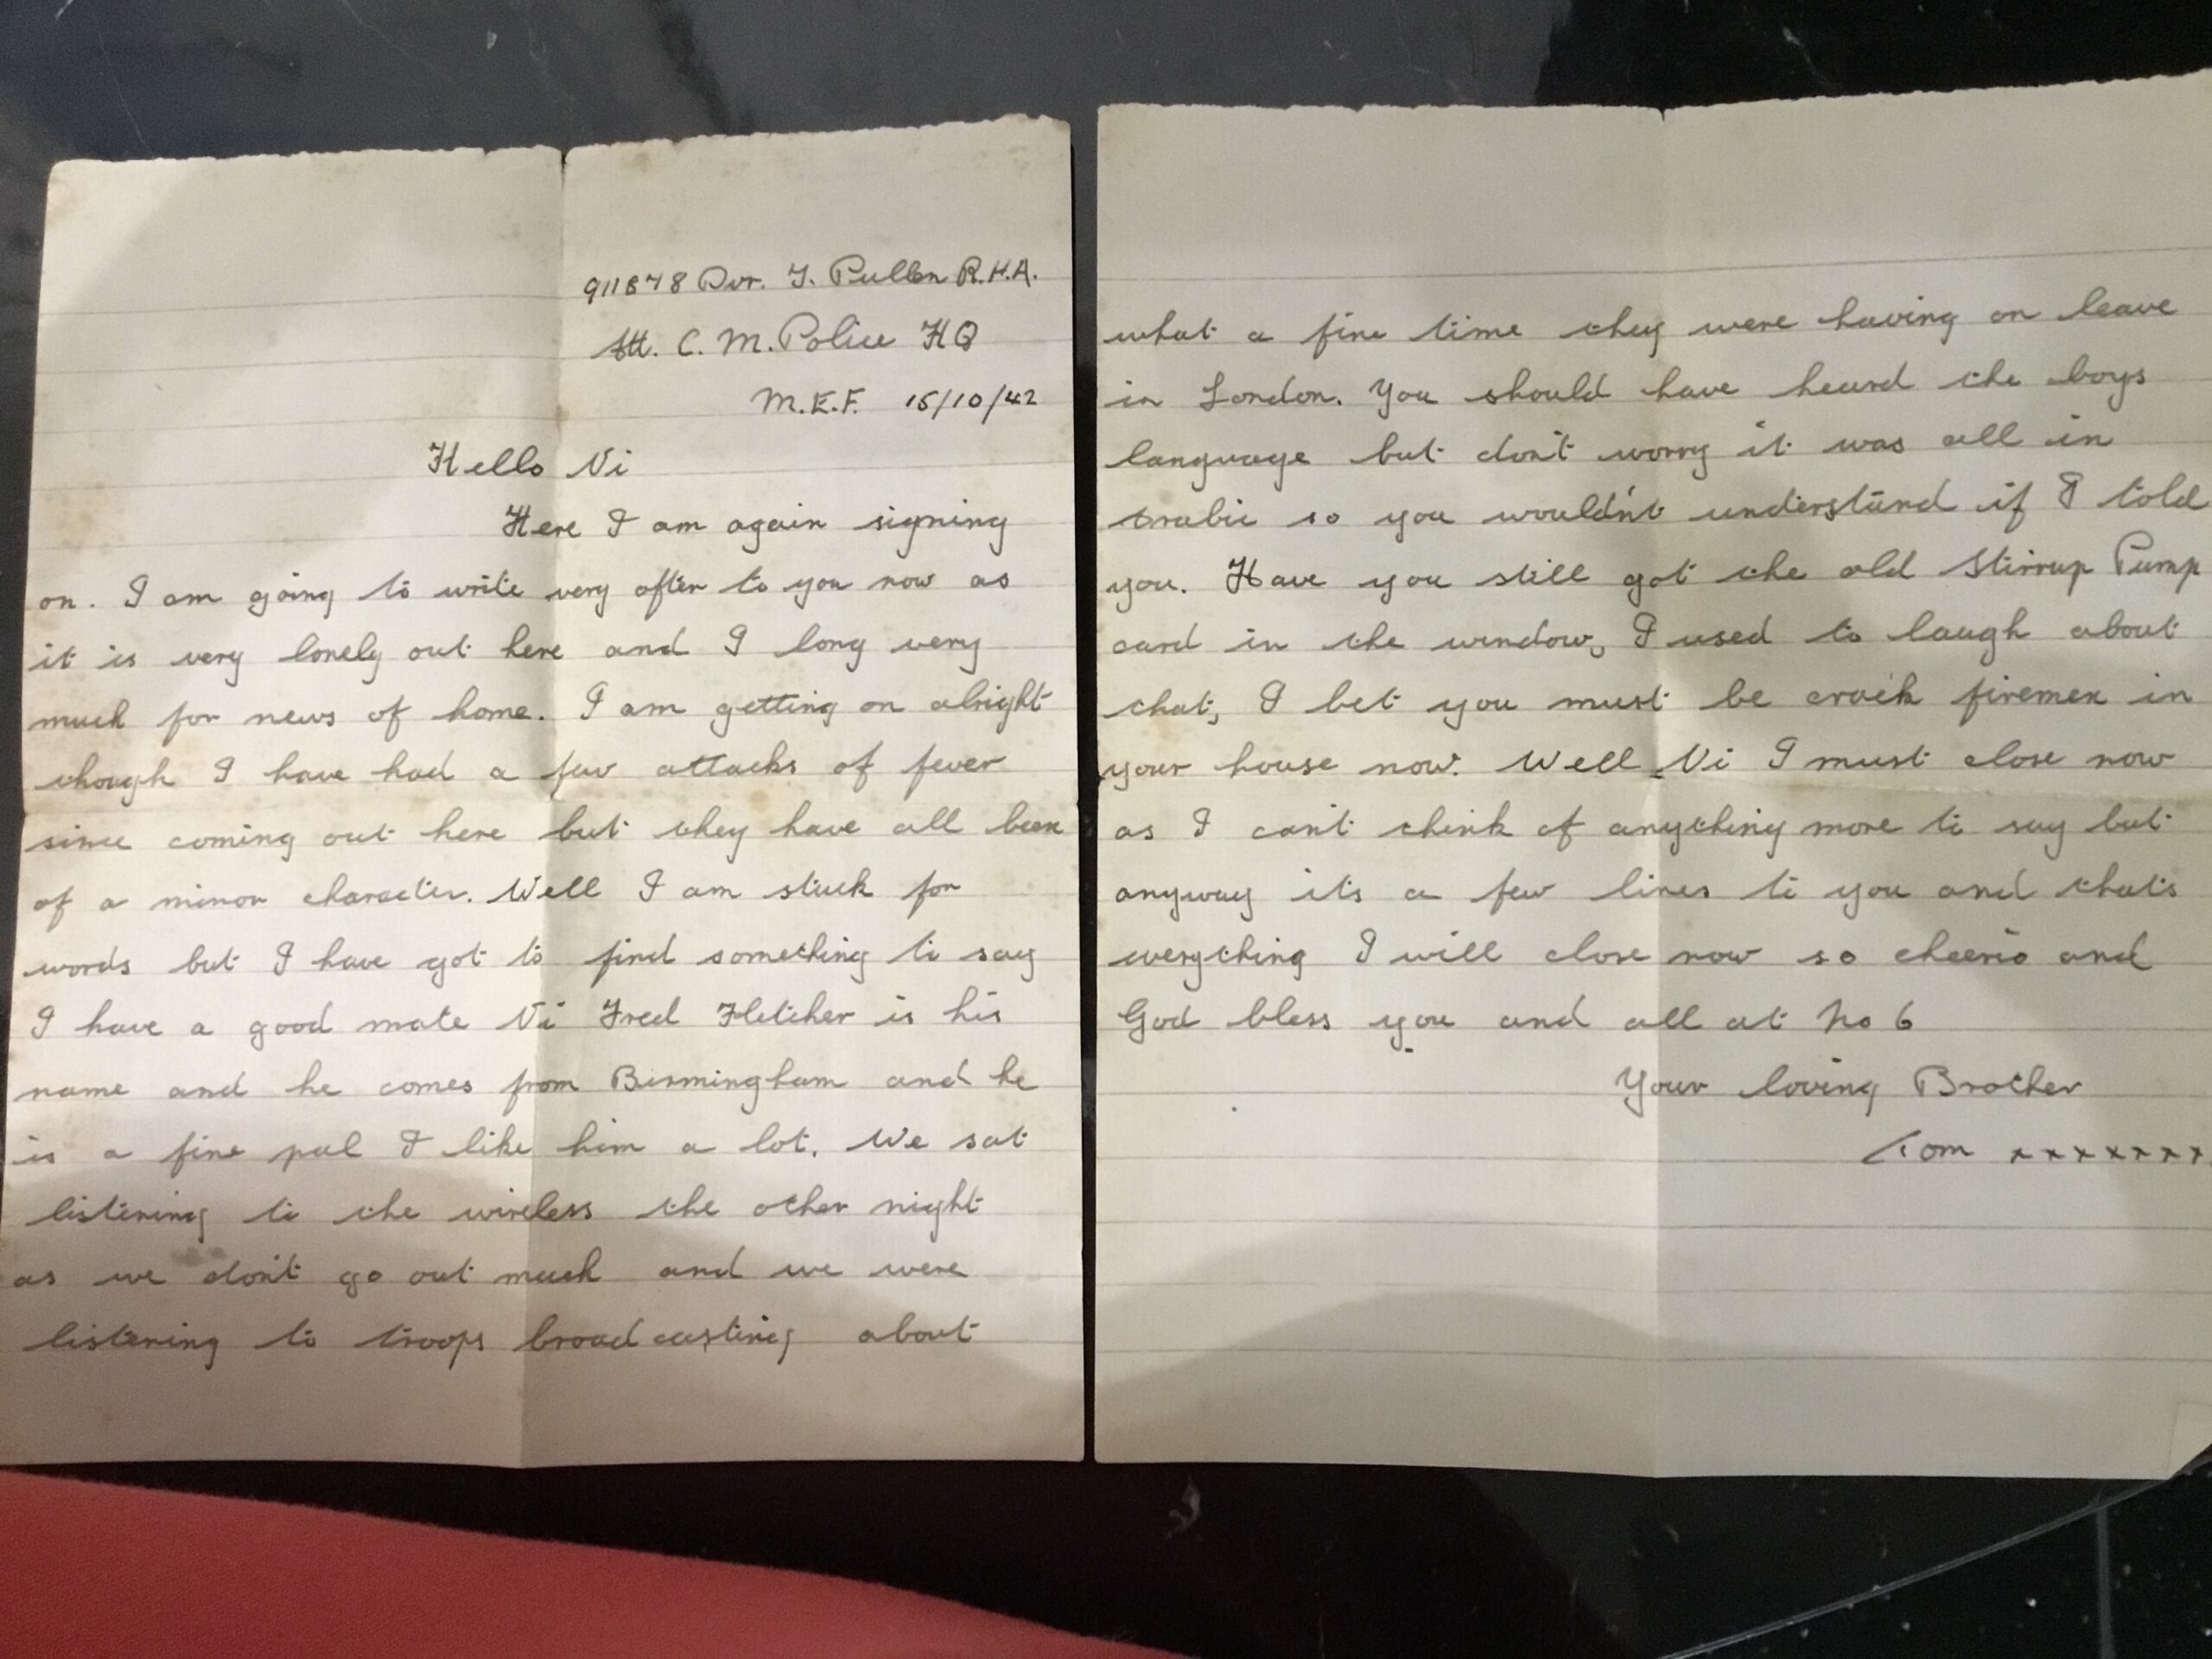 911678 Dvr. T. Pullen R.H.A.
Att. C. M. Police HQ
M.E.F. 15/10/42
Hello Vi
Here I am again signing
on. I am going to write very often to you now as
it is very lonely out here and I long very
much for news of home. I am getting on alright
though I have had a few attacks of fever
since coming out here but they have all been
of a minor character. Well I am stuck for
words but I have got to find something to say
I have a good mate Vi Fred Fletcher is his
name and he comes from Birmingham and he
is a fine pal I like him a lot. We sat
listening to the wireless the other night
as we don't go out much and we were
listening to troops broadcasting about
what a fine time they were having on leave
in London. You should have heard the boys
language but don't worry it was all in
Arabic so you wouldn't understand if I told
you. Have you still got the old Stirrup Pump
card in the window, I used to laugh about
that, I bet you must be crack firemen in
your house now. Well Vi I must close now
as I can't think of anything more to say but
anyway its a few lines to you and thats
everything I will close now so cheerio and
God bless you and all at No 6
Your loving Brother
Tom xxxxxxx